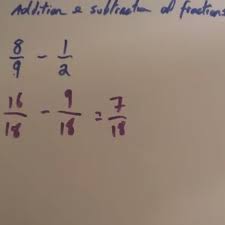 Addition & subtraction of fractions
8/9 - 1/2
16/18 - 9/18 = 7/18